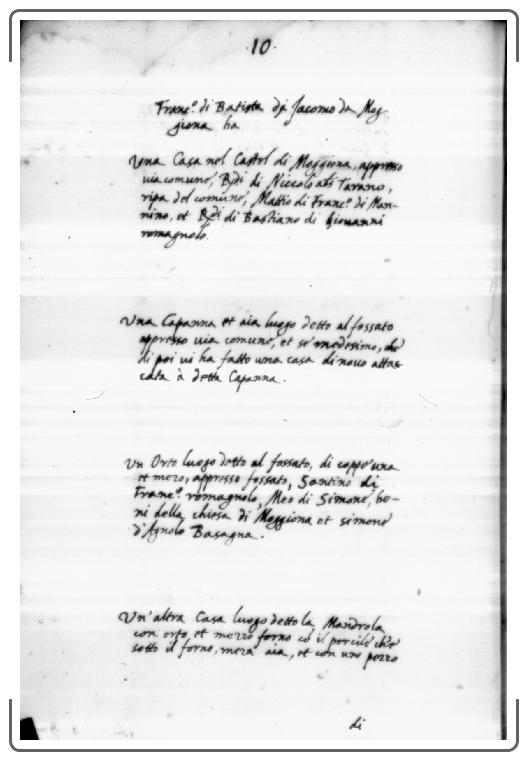 ·10·
Franc.º di Batista di Jacomo da Mog-
giona ha
Una Casa nel Castel di Moggiona, appresso
via comune, Rdi di Niccolo als Tarano,
ripa del comune, Mattio di Franc.º di Man-
nino, et Rdi di Bastiano di Giouanni
romagnolo.
Una Capanna et aia luogo detto al fossato
appresso uia comune, et se medesimo, che
di poi ui ha fatto una casa di nouo attac-
cata à detta Capanna.
Un Orto luogo detto al fossato, di coppe una
et mezo, appresso fossato, Santino di
Franc.º romagnolo, Meo di Simone, be-
ni della chiesa di Moggiona et simone
d'Agnolo Basagna.
Un'altra Casa luogo detto la Mandrola
con orto, et mezzo forno cò il porcile ch'è
sotto il forno, meza aia, et con uno pezzo
di